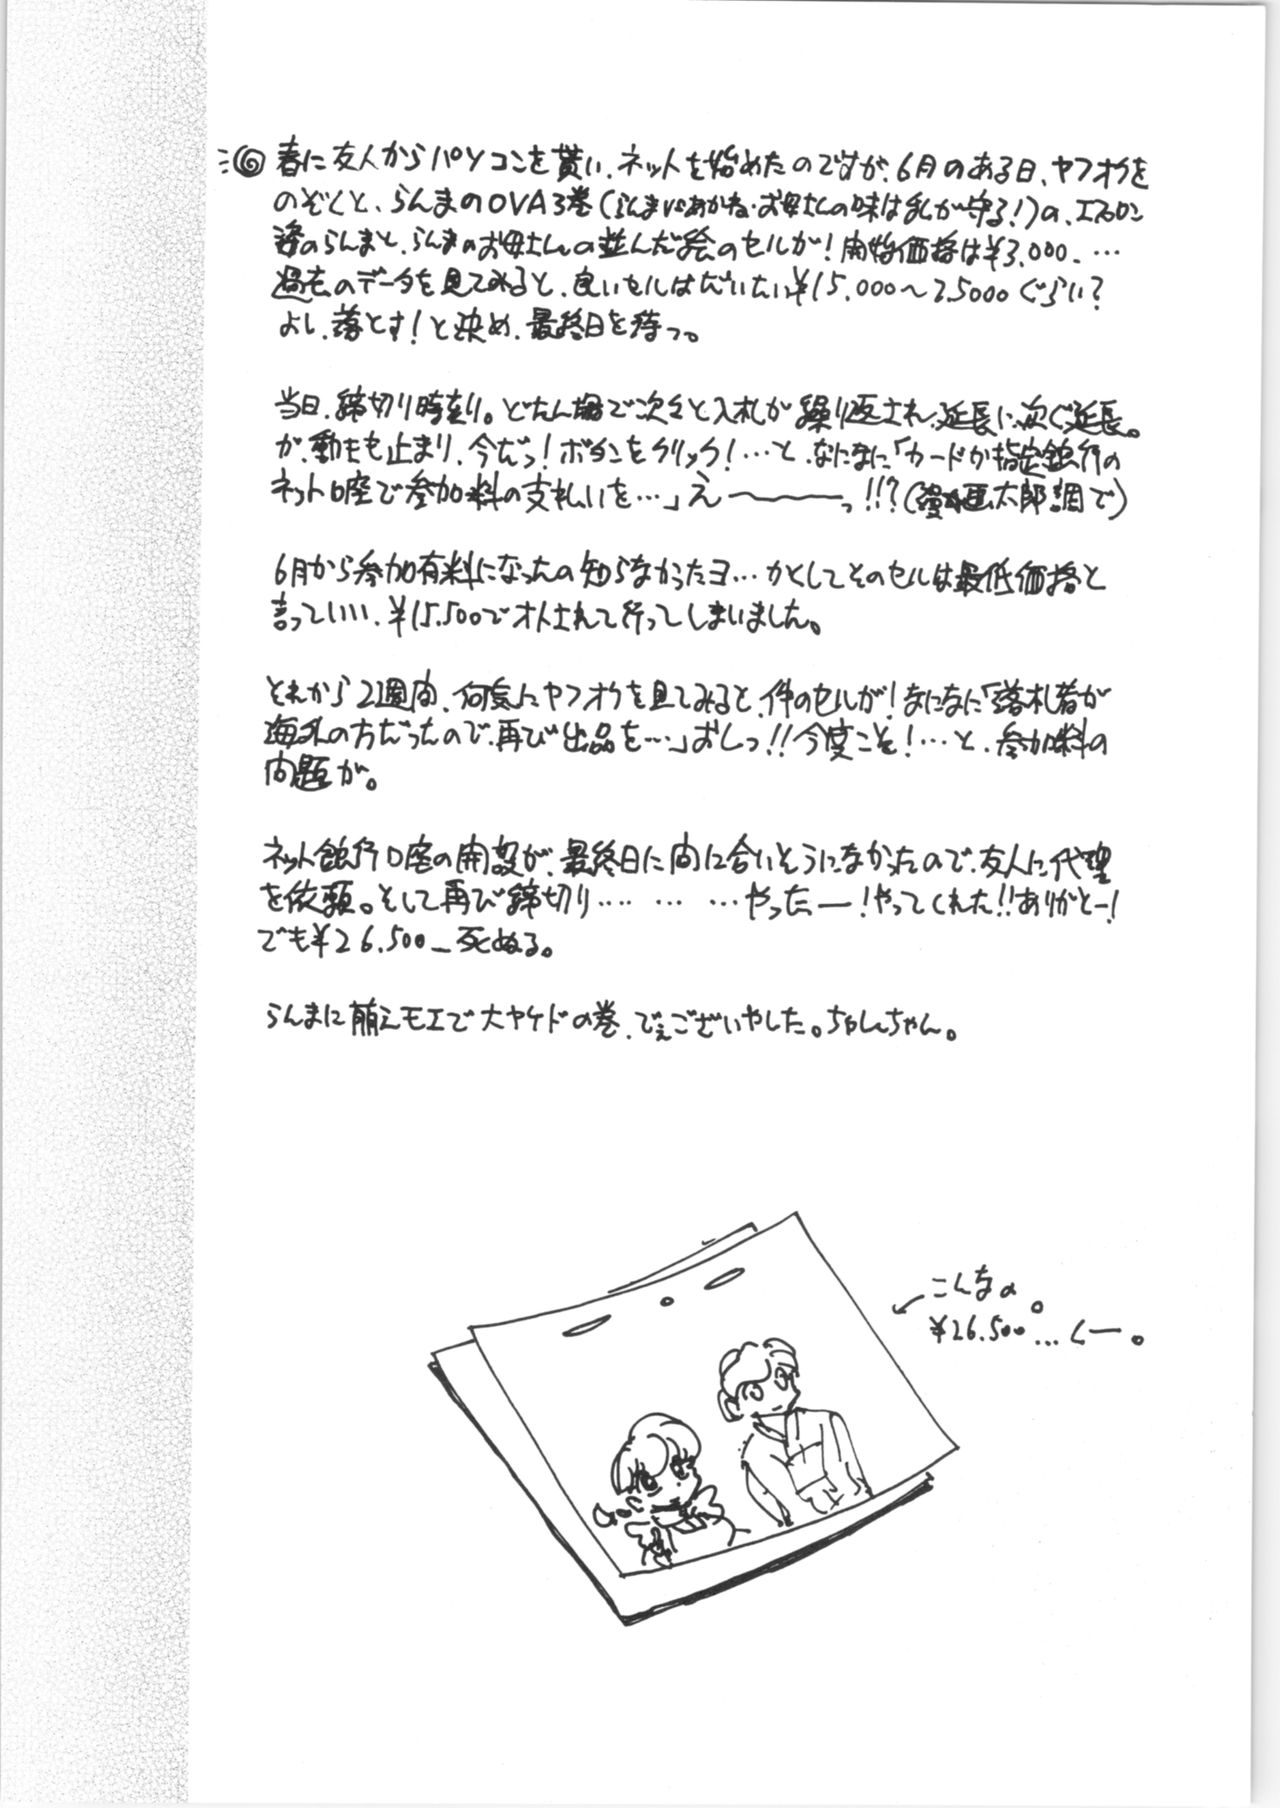 春に友人からパソコンを貰い、ネットを始めたのですが、6月のある日、ヤフオクを
のぞくと、らんまのOVA3巻(らんまVSあかね・お母さんの味は私が守る!)の、エプロン
姿のらんまと、らんまのお母さんの並んだ絵のセルが!開始価格は¥3,000、…
過去のデータを見てみると、良いセルはだいたい¥15,000〜25000ぐらい?
よし、落とす!と決め、最終日を待つ。
当日、締切り時刻。どたん場で次々と入札が繰り返され、延長に次ぐ延長。
が、動きも止まり、今だっ!ボタンをクリック!…と、なになに「カードか指定銀行の
ネット口座で参加料の支払いを…」え〜〜〜〜っ!!?(漫☆画太郎調で)
6月から参加有料になったの知らなかったヨ…かくしてそのセルは最低価格と
言っていい、¥15,500でオトされて行ってしまいました。
それから2週間、何気にヤフオクを見てみると、件のセルが!なになに「落札者が
海外の方だったので、再び出品を…」おしっ!!今度こそ!…と、参加料の
問題が。
ネット銀行口座の開設が、最終日に間に合いそうになかったので、友人に代理
を依頼。そして再び締切り… … …やったー!やってくれた!!ありがとー!
でも¥26,500_死ぬる。
らんまに萌えモエで大ヤケドの巻、でぇございやした。ちゃんちゃん。
こんなの。
¥26,500…くー。